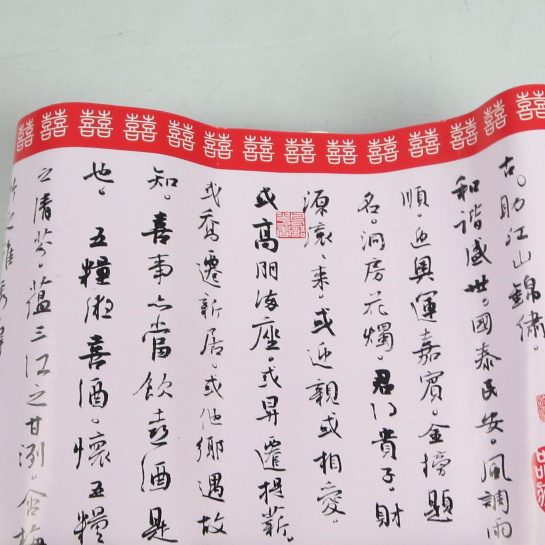 囍囍囍囍囍囍囍囍囍囍囍囍囍囍
古。助江山錦繡。
和谐盛世。國泰民安。風調雨
順。迎奥運嘉賓。金榜題
名。洞房花燭。君门貴子。財
源滚滚来。或迎親或相愛。
或高朋满座。或昇遷提薪。
或喬遷新居。或他鄉遇故
知。喜事六當飲喜酒是
也。五糧液喜酒。懷五糧
之清芬。蕴三江之甘洌。含梅